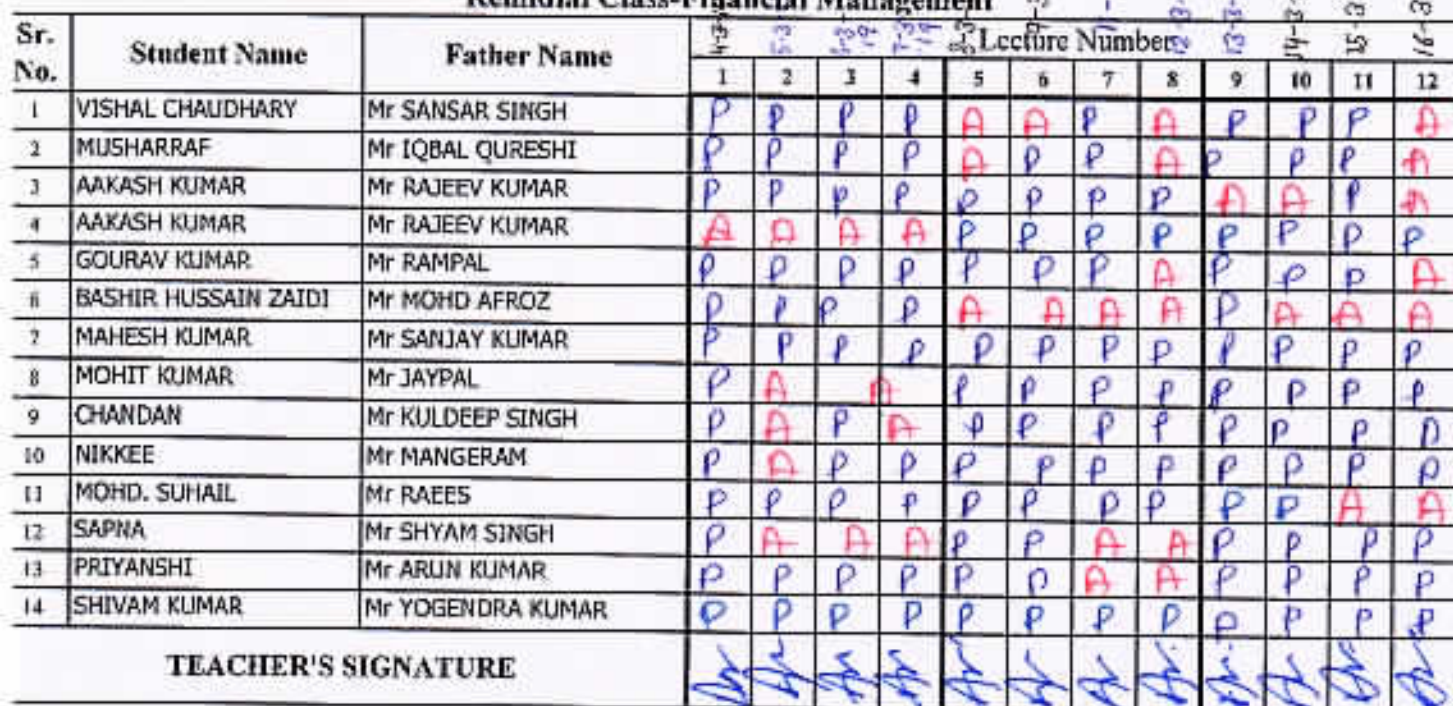 Remidial Class-Financial Management
4-3- 5-3 5-3-19 7-3-19 13-3- 14-3- 15-3 16-3
Sr. No. Student Name Father Name Lecture Number
1 2 3 4 5 6 7 8 9 10 11 12
1 VISHAL CHAUDHARY Mr SANSAR SINGH P P P P A A P A P P P A
2 MUSHARRAF Mr IQBAL QURESHI P P P P A P P A P P P A
3 AAKASH KUMAR Mr RAJEEV KUMAR P P P P P P P P A A P A
4 AAKASH KUMAR Mr RAJEEV KUMAR A A A A P P P P P P P P
5 GOURAV KUMAR Mr RAMPAL P P P P P P P A P P P A
6 BASHIR HUSSAIN ZAIDI Mr MOHD AFROZ P P P P A A A A P A A A
7 MAHESH KUMAR Mr SANJAY KUMAR P P P P P P P P P P P P
8 MOHIT KUMAR Mr JAYPAL P A A P P P P P P P P
9 CHANDAN Mr KULDEEP SINGH P A P A P P P P P P P P
10 NIKKEE Mr MANGERAM P A P P P P P P P P P P
11 MOHD. SUHAIL Mr RAEES P P P P P P P P P P A A
12 SAPNA Mr SHYAM SINGH P A A A P P A A P P P P
13 PRIYANSHI Mr ARUN KUMAR P P P P P P A A P P P P
14 SHIVAM KUMAR Mr YOGENDRA KUMAR P P P P P P P P P P P P
TEACHER'S SIGNATURE